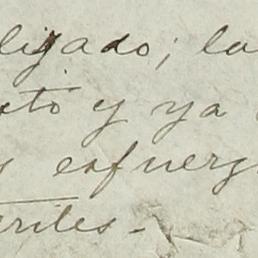 ligado; la
sto y ya
s esfuerz
eriles-